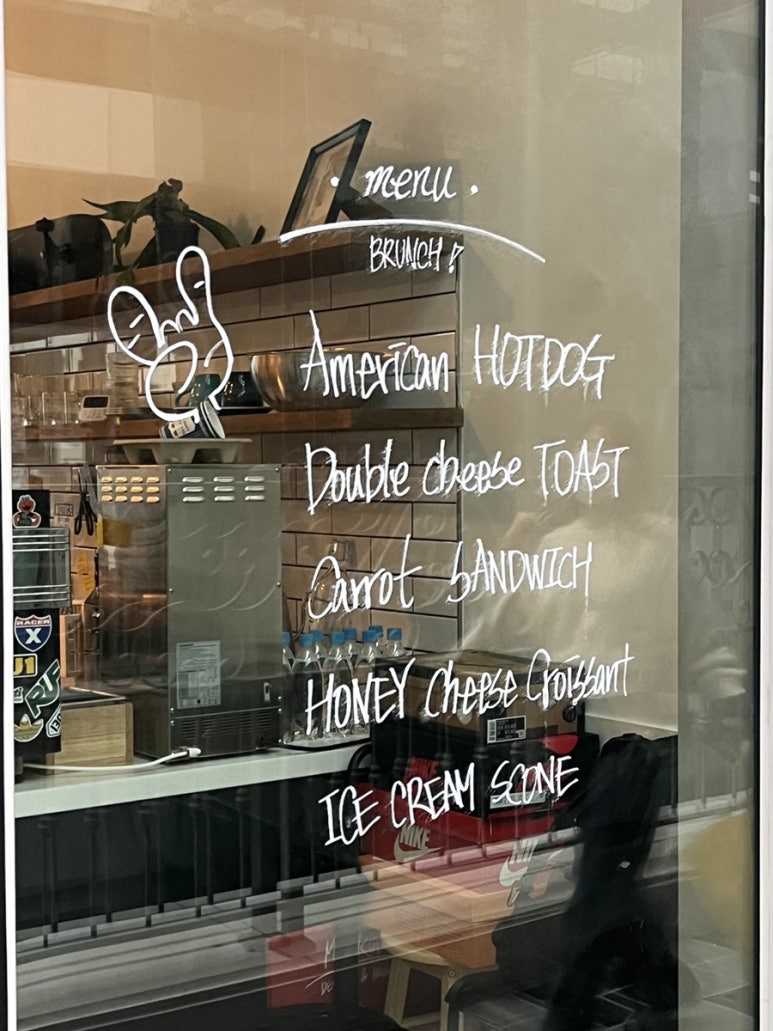 • menu •
BRUNCH!
American HOTDOG
Double cheese TOAST
Carrot SANDWICH
HONEY Cheese Croissant
ICE CREAM SCONE
NOTICE
RACER
X
J1
RUF
NIKE